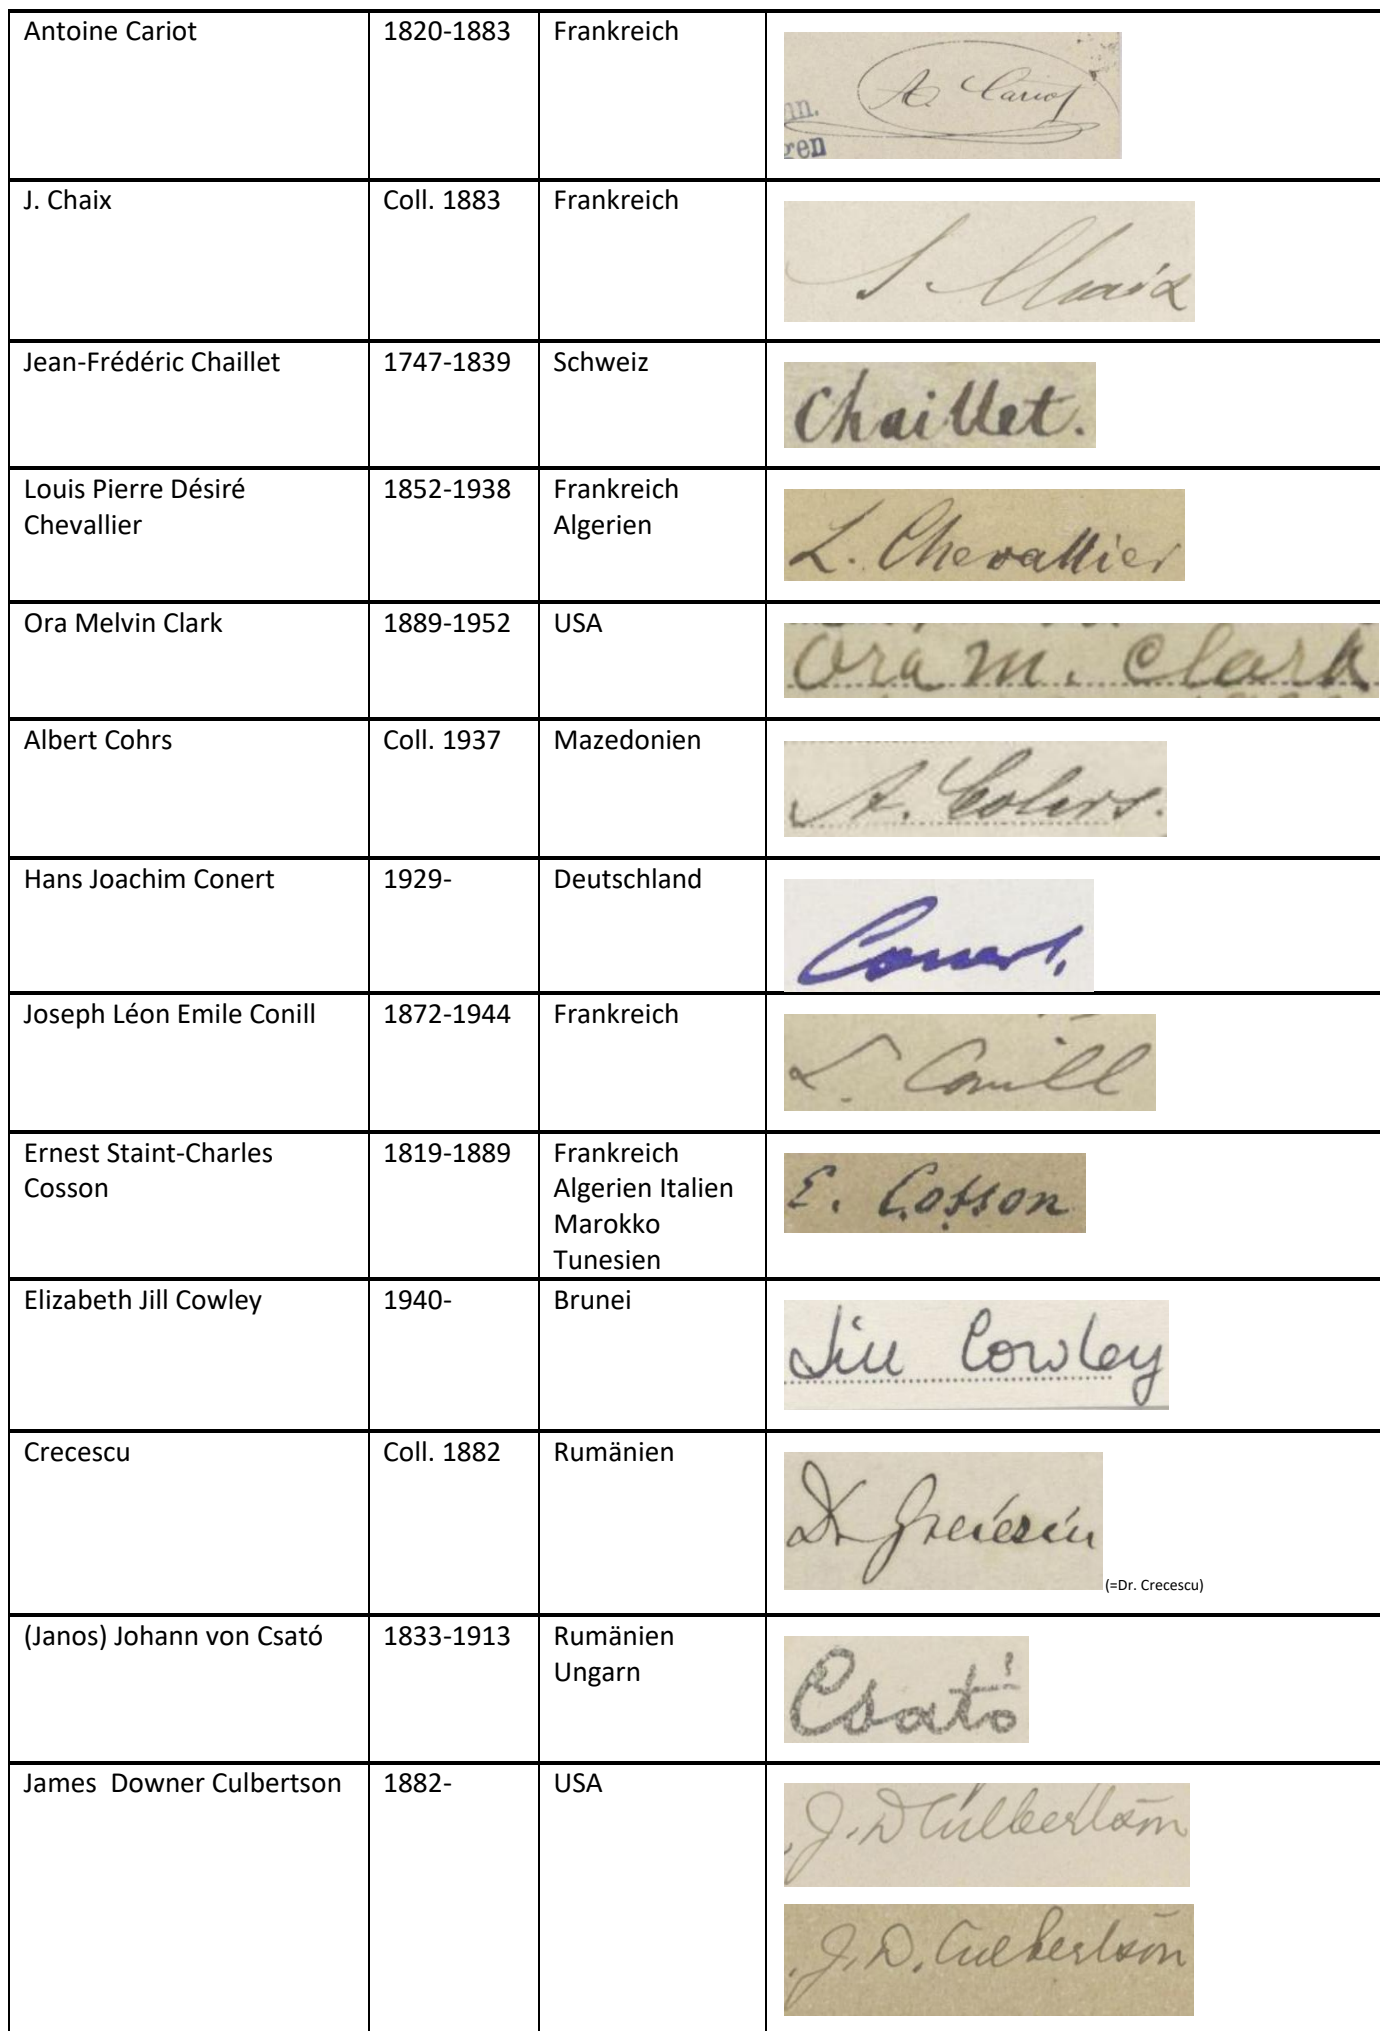 Antoine Cariot 1820-1883 Frankreich
A. Cariot
nn.
gen
J. Chaix Coll. 1883 Frankreich
J. Chaix
Jean-Frédéric Chaillet 1747-1839 Schweiz
Chaillet.
Louis Pierre Désiré 1852-1938 Frankreich
Chevallier Algerien
L. Chevallier
Ora Melvin Clark 1889-1952 USA
Ora M. Clark
Albert Cohrs Coll. 1937 Mazedonien
A. Cohrs.
Hans Joachim Conert 1929- Deutschland
Conert.
Joseph Léon Emile Conill 1872-1944 Frankreich
L. Conill
Ernest Staint-Charles 1819-1889 Frankreich
Cosson Algerien Italien
Marokko
Tunesien
E. Cosson
Elizabeth Jill Cowley 1940- Brunei
Jill Cowley
Crecescu Coll. 1882 Rumänien
Dr Grecescu
(=Dr. Crecescu)
(Janos) Johann von Csató 1833-1913 Rumänien
Ungarn
Csató
James Downer Culbertson 1882- USA
J. D Culbertson
J. D. Culbertson